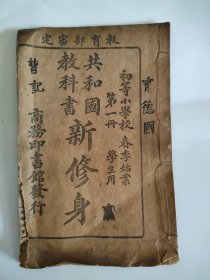 教育部審定
初等小學校 春季始業
第一冊 學生用
共和國
教科書
新修身
商務印書館發行